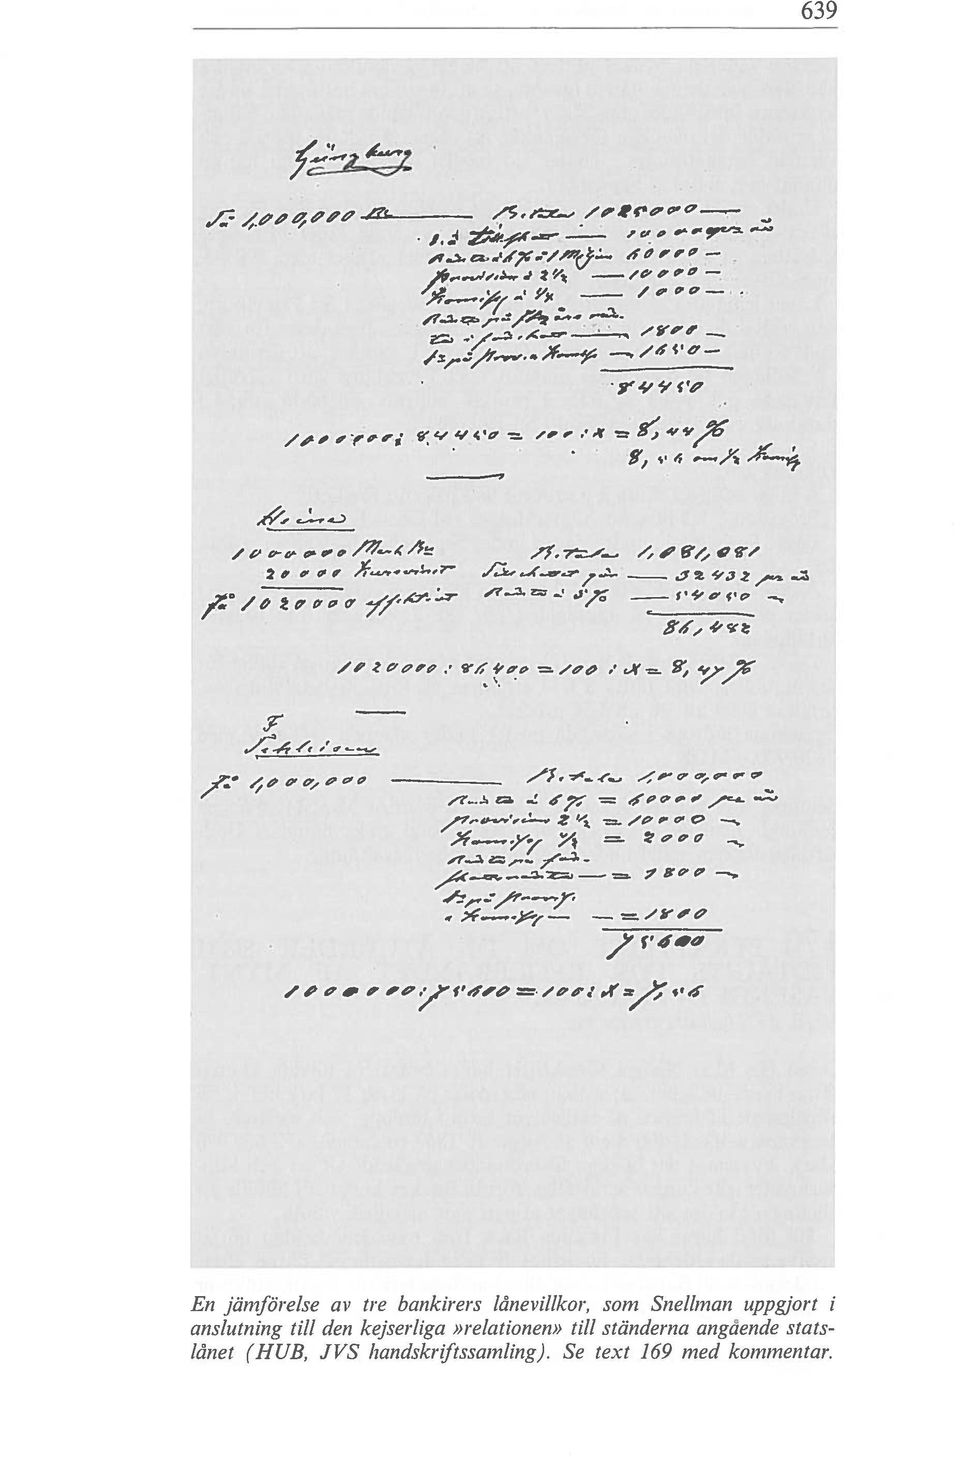 639
Günzburg
Få 1,000,000 Rb Betala 1025000
Ränta à 6% à 1 Miljon 60000
provision à 2½ 10000
Komiss à ¼ 1000
Ränta på
1800
på prov. à Komiss 1650
84450
1000000: 84450 = 100 : X = 8,44 %
8,56 om ½ Komiss
Heine
1000000 Mark Bco Betala 1,081,081
20000 Kursvinst 32432 per år
Få 1020000 effektivt Ränta à 5% 54050
86,482
1020000 : 86400 = 100 : X = 8,47 %
F
Schleisen
Få 1,000,000 Betala 1,000,000
Ränta à 6% = 60000 per år
Provision 2½ = 10000
Komiss ½ = 2000
Ränta på
= 1800
på provis.
à Komiss = 1800
75600
1000000: 75600 = 100: X = 7,56
En jämförelse av tre bankirers lånevillkor, som Snellman uppgjort i
anslutning till den kejserliga »relationen» till ständerna angående stats-
lånet (HUB, JVS handskriftssamling). Se text 169 med kommentar.